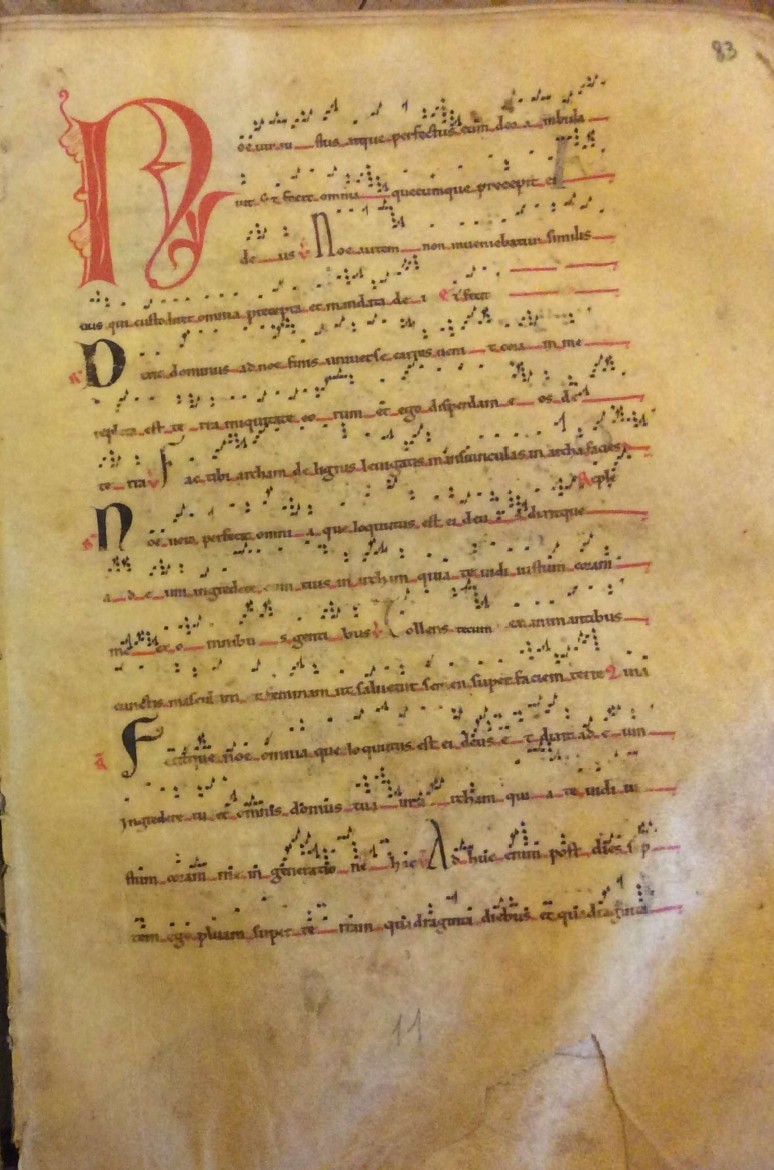 83
Noe vir iustus atque perfectus cum deo ambula
vit & fecit omnia quecumque precepit ei
deus ℣ Noe virum non inveniebatur similis
eius qui custodiret omnia precepta et mandata dei Et fecit
℟ Dixit dominus ad noe finis universe carnis venit coram me
repleta est terra iniquitate eorum et ego disperdam eos de
terra ℣ Fac tibi archam de lignis levigatis mansiunculas in archa facies
Reple
℟ Noe vero perfecit omnia que loquutus est ei deus dixitque
ad eum ingredere cum tuis in archam quia te vidi iustum coram
me ex omnibus gentibus ℣ Tollens tecum ex animantibus
cunctis masculinum et feminam ut salvetur semen super faciem terre Quia
℟ Fecitque noe omnia que loquutus est ei deus et dixit ad eum
Ingredere tu et omnis domus tua in archam quia te vidi iu
stum coram me in generatione hac ℣ Adhuc enim post dies sep
tem ego pluam super terram quadraginta diebus et quadraginta
11